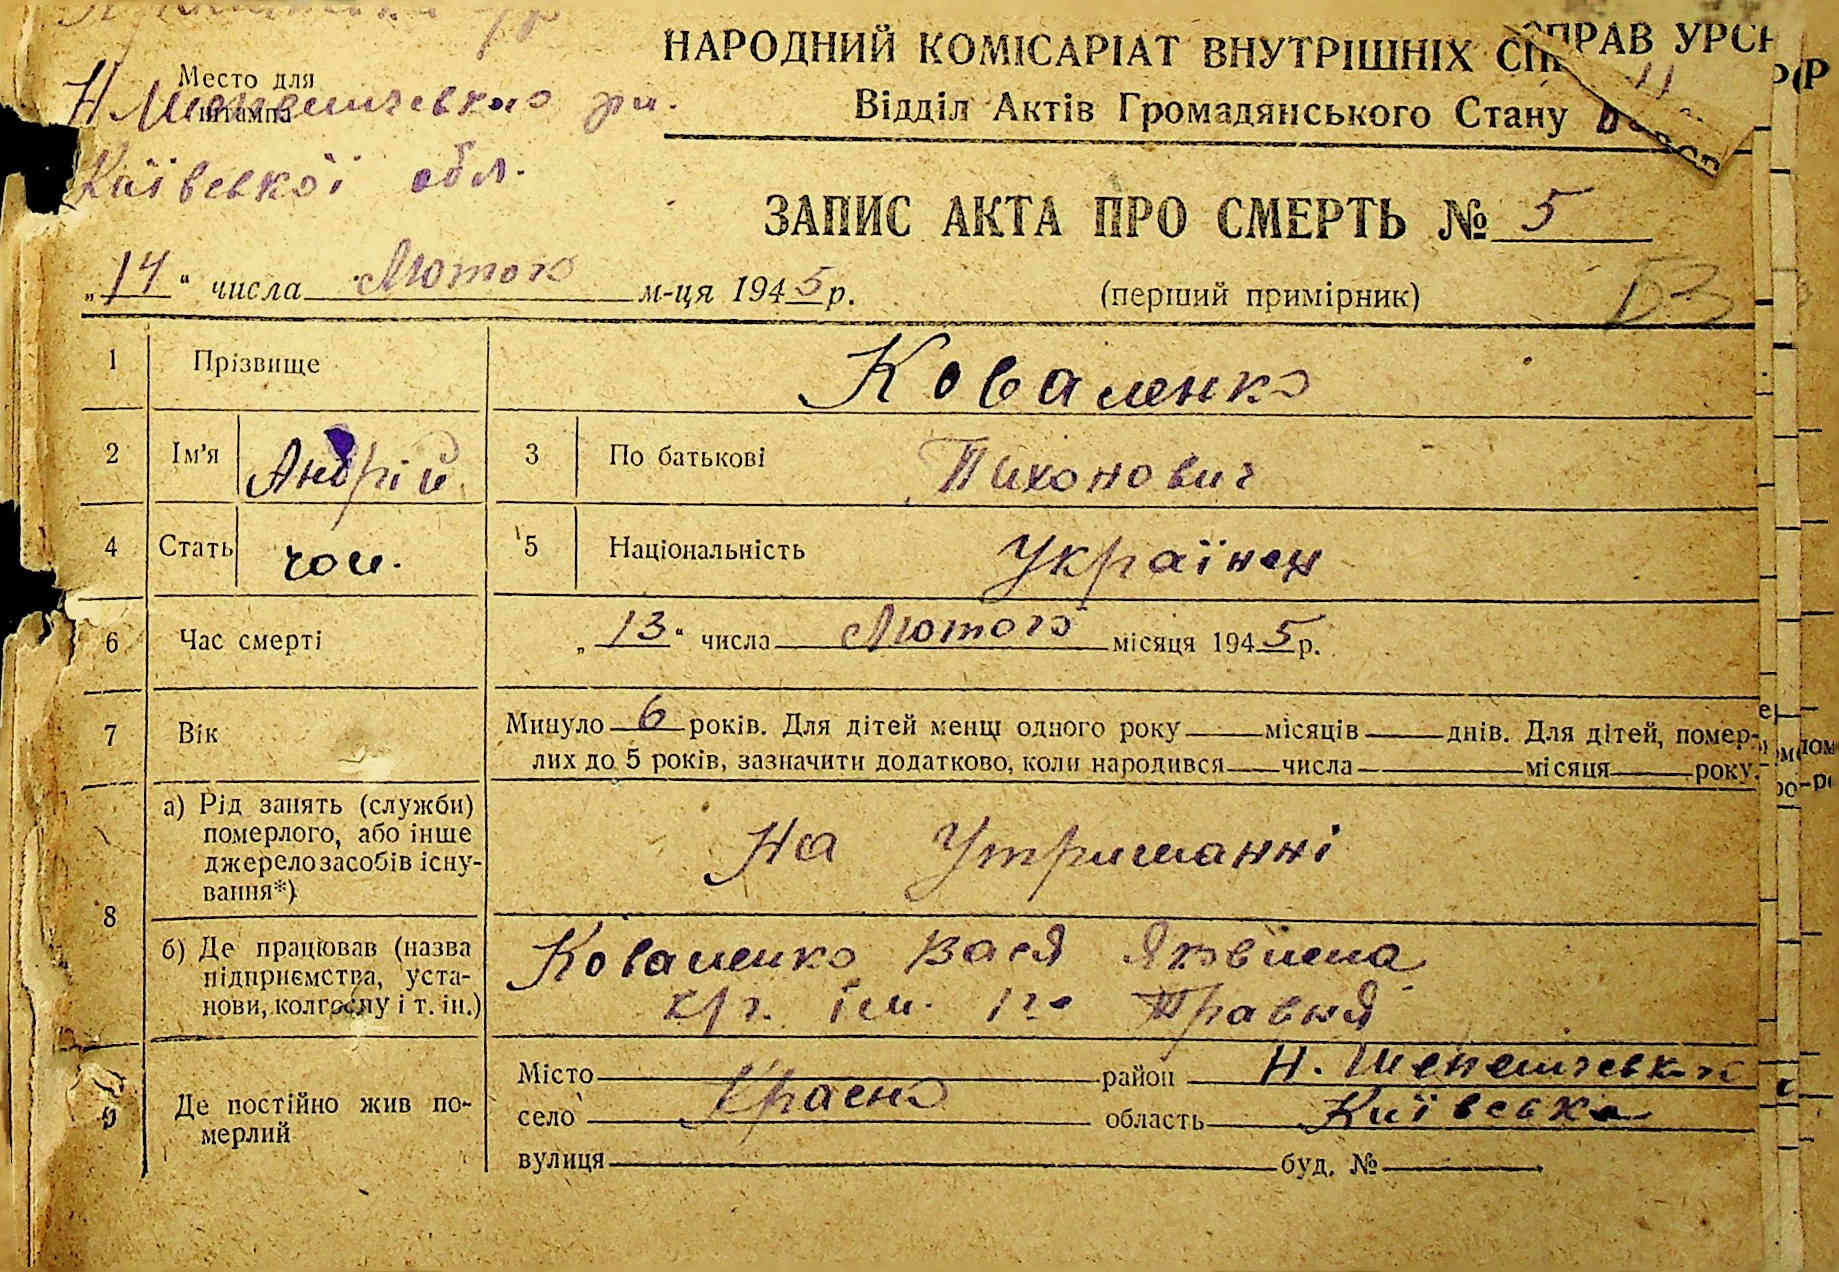 Место для
штампа
Н Шепеличевського рн.
Київської обл.
НАРОДНИЙ КОМІСАРІАТ ВНУТРІШНІХ СПРАВ УРСР
Відділ Актів Громадянського Стану
ЗАПИС АКТА ПРО СМЕРТЬ № 5
„14“ числа Лютого м-ця 1945 р.
(перший примірник)
БЗ
1 Прізвище Коваленко
2 Ім'я Андрій 3 По батькові Тихонович
4 Стать чол. 5 Національність Українец
6 Час смерті „13“ числа Лютого місяця 1945 р.
7 Вік Минуло 6 років. Для дітей менш одного року місяців днів. Для дітей, помер-
лих до 5 років, зазначити додатково, коли народився числа місяця року.
8 а) Рід занять (служби)
померлого, або інше
джерело засобів існу-
вання*)
На Утриманні
б) Де працював (назва
підприємства, уста-
нови, колгоспу і т. ін.)
Коваленко Вася Яковлена
к/г. ім. 1го Травня
9 Де постійно жив по-
мерлий
Місто район Н. Шепеличевско
село Красно область Київська
вулиця буд. №